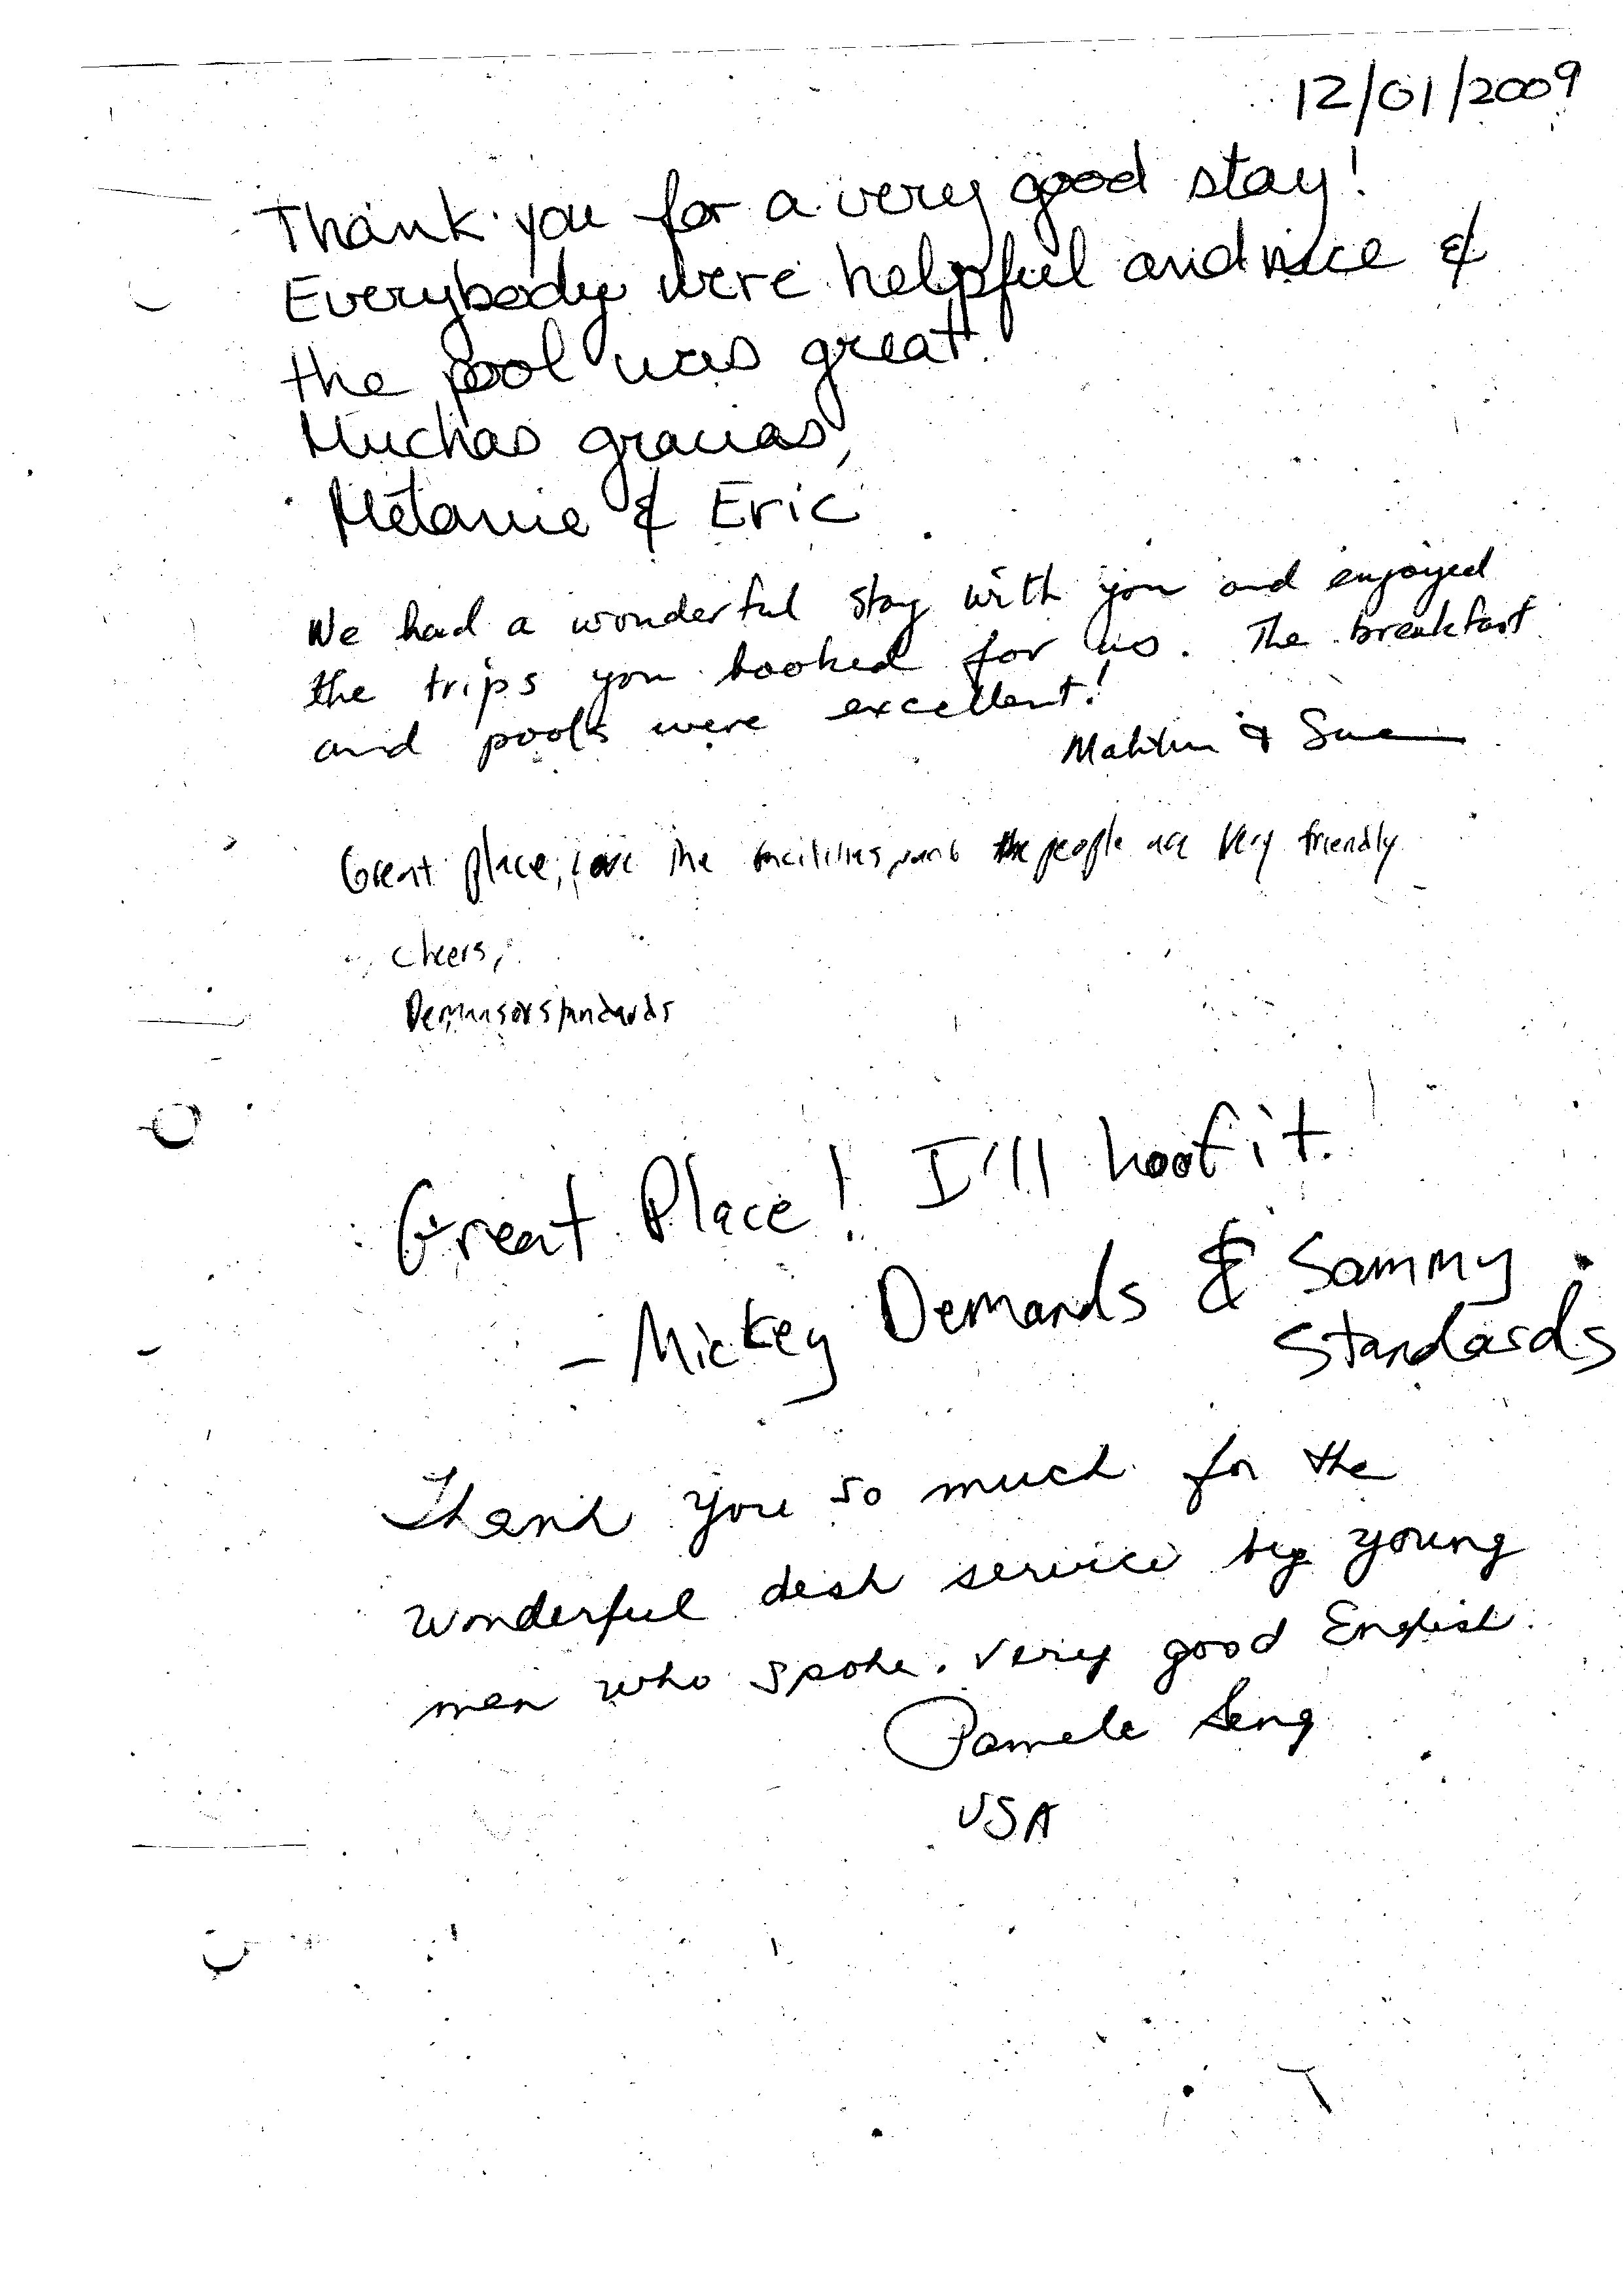 12/01/2009
Thank you for a very good stay!
Everybody were helpful and nice &
the pool was great.
Muchas gracias,
Mélanie & Eric
We had a wonderful stay with you and enjoyed
the trips you booked for us. The breakfast
and pools were excellent!
& Sue
Great place, love the facilities, and the people are very friendly
cheers,
Demansorstandards
Great Place! I'll hoof it.
- Mickey Demands & Sammy
Standards
Thank you so much for the
wonderful desk service by young
men who spoke very good English.
Pamela Seng
USA